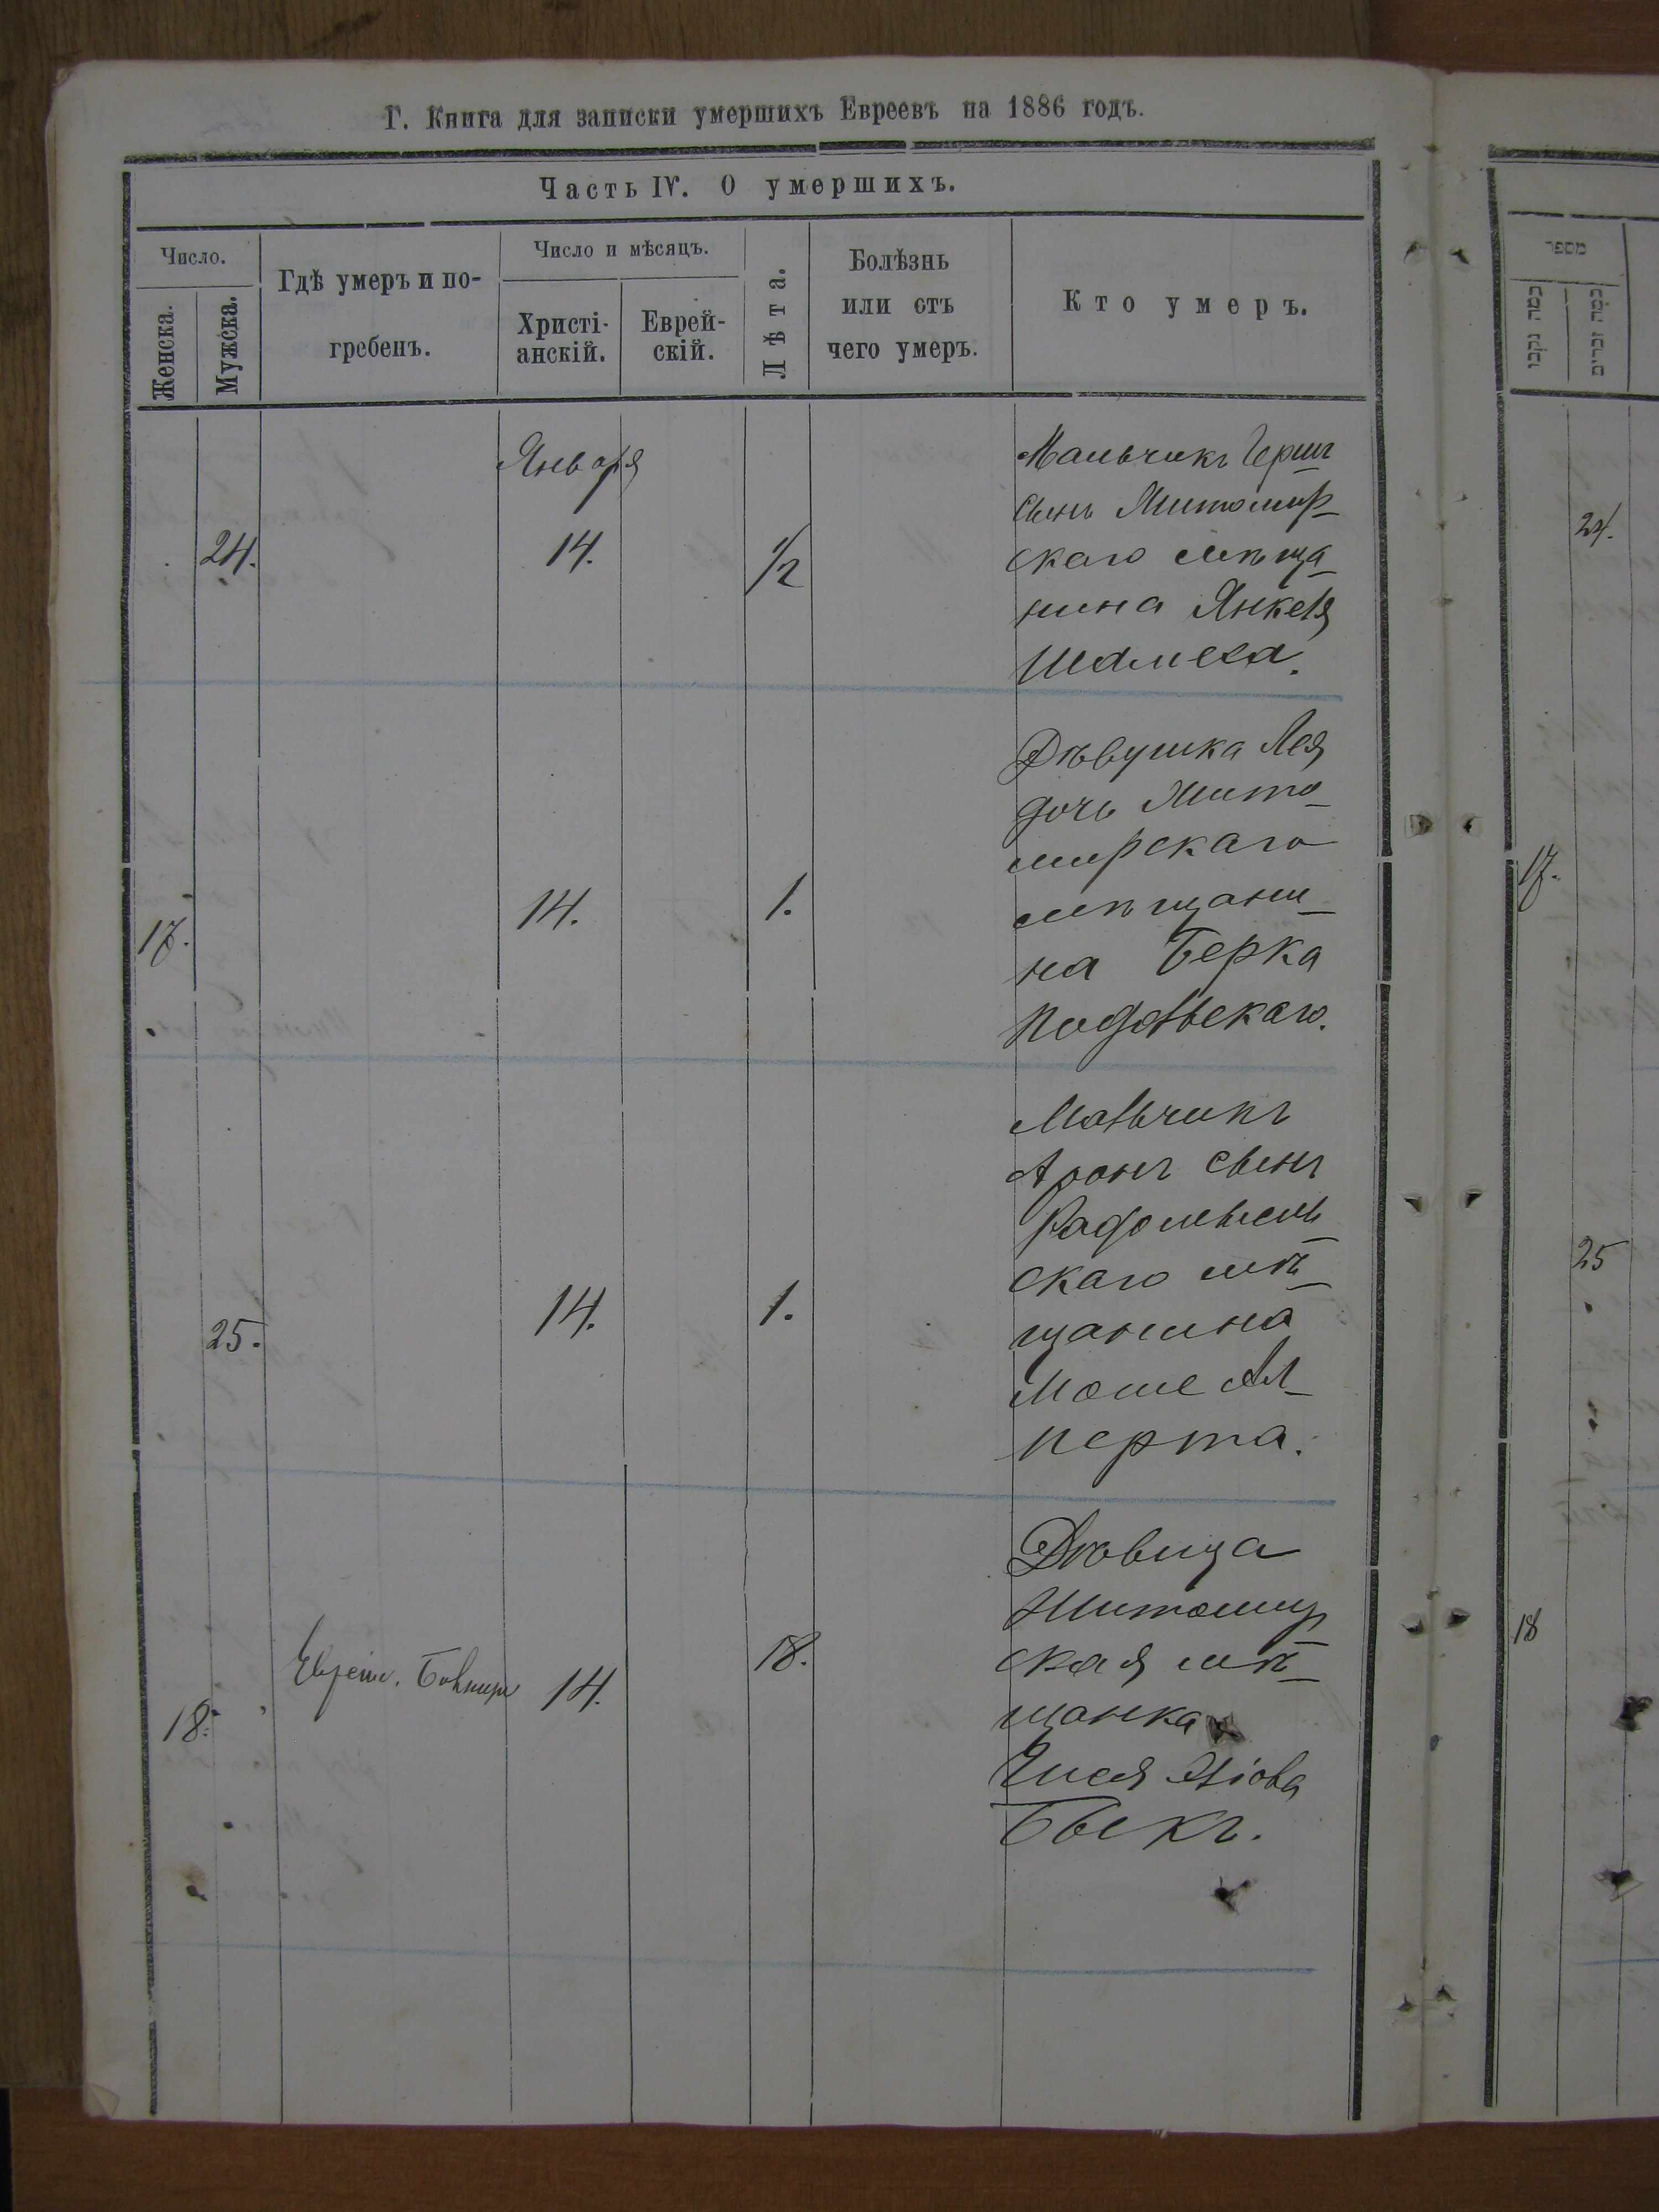 Г. Книга для записки умершихъ Евреевъ на 1886 годъ.
Часть IV. О умершихъ.
Число.
Женска.
Мужска.
Гдѣ умеръ и по-
гребенъ.
Число и мѣсяцъ.
Христі-
анскій.
Еврей-
скій.
Лѣта.
Болѣзнь
или отъ
чего умеръ.
Кто умеръ.
Января
24.
14.
1/2
Мальчикъ Герш
сынъ Житомир-
скаго мѣща-
нина Янкеля
Шамеса.
17.
14.
1.
Дѣвушка Лея
дочь Жито-
мирскаго
мѣщани-
на Берка
Подольскаго.
25.
14.
1.
Мальчикъ
Аронъ сынъ
Радомысль-
скаго мѣ-
щанина
Моше Ал-
перта.
18.
Еврейс.
14.
18.
Дѣвица
Житомир
ская мѣ-
щанка
Быкъ.
מספר
24.
17.
25
18